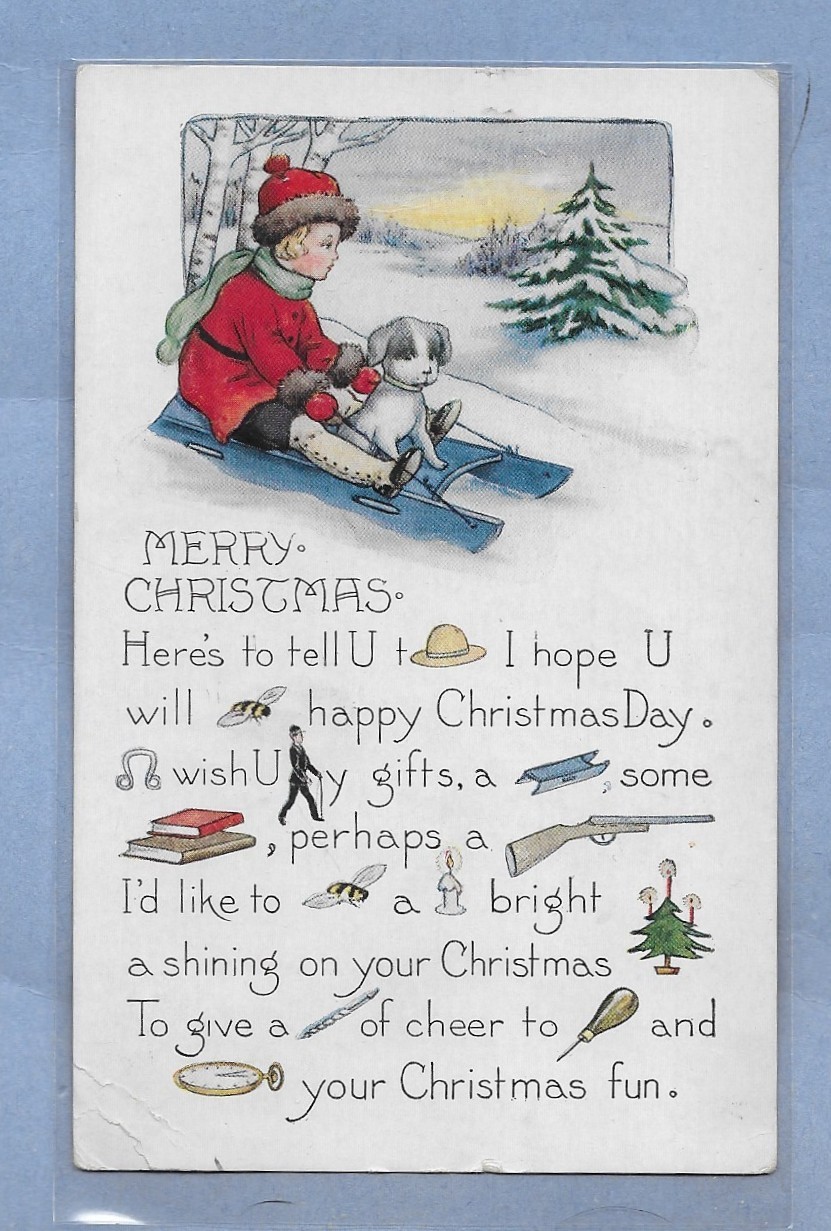 MERRY
CHRISTMAS
Here's to tell U t I hope U
will happy Christmas Day.
wish U y gifts, a , some
, perhaps a
I'd like to a bright
a shining on your Christmas
To give a of cheer to and
your Christmas fun.